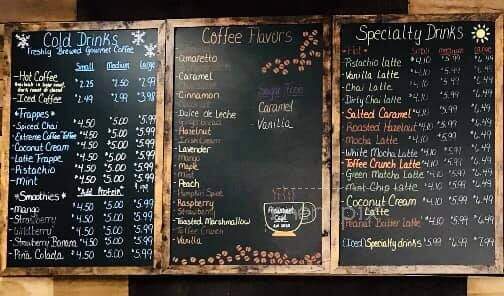 Cold Drinks
Freshly Brewed Gourmet Coffee
Small Medium Large
-Hot Coffee
$2.25 $2.50 $2.99
-Iced Coffee $2.49 $2.99 $3.98
*Frappes*
-Spiced Chai $4.50 $5.00 $5.99
Extreme Coffee Toffee $4.50 $5.00 $5.99
-Coconut Cream $4.50 $5.00 $5.99
-Latte Frappe $4.50 $5.00 $5.99
-Pistachio $4.50 $5.00 $5.99
-Mint $4.50 $5.00 $5.99
*Smoothies* Add Protein
-Mango $4.50 $5.00 $5.99
-Strawberry $4.50 $5.00 $5.99
-Wildberry $4.50 $5.00 $5.99
-Strawberry Banana $4.50 $5.00 $5.99
-Pina Colada $4.50 $5.00 $5.99
Coffee Flavors
-Amaretto
-Caramel
-Cinnamon
-Dulce de Leche
-Hazelnut
-Lavender
-Mango
-Maple
-Mint
-Peach
-Pumpkin Spice
-Raspberry
-Strawberry
-Toasted Marshmallow
-Toffee Crunch
-Vanilla
Sugar Free
Caramel
-Vanilla
Specialty Drinks
*Hot* Small medium large
-Pistachio Latte $4.10 $5.99 $6.99
-Vanilla Latte $4.10 $5.99 $6.99
-Chai Latte $4.10 $5.99 $6.99
-Dirty Chai Latte $4.10 $5.99 $6.99
-Salted Caramel $4.10 $5.99 $6.99
-Roasted Hazelnut $4.10 $5.99 $6.99
-Mocha Latte $4.10 $5.99 $6.99
-White Mocha Latte $4.10 $5.99 $6.99
-Toffee Crunch Latte $4.10 $5.99 $6.99
-Green Matcha Latte $4.10 $5.99 $6.99
-Mint-Chip Latte $4.10 $5.99 $6.99
-Coconut Cream Latte $4.10 $5.99 $6.99
-Peanut Butter Latte $4.10 $5.99 $6.99
(Iced) Specialty drinks $5.99 $6.99 $7.99